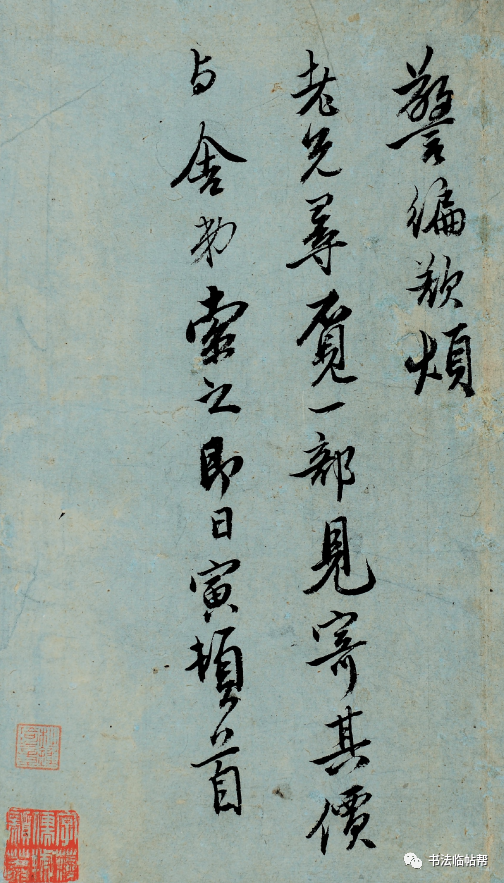 警編欵煩
老兄尋覓一部見寄其價
与舍弟索之即日寅頓首
书法临帖帮